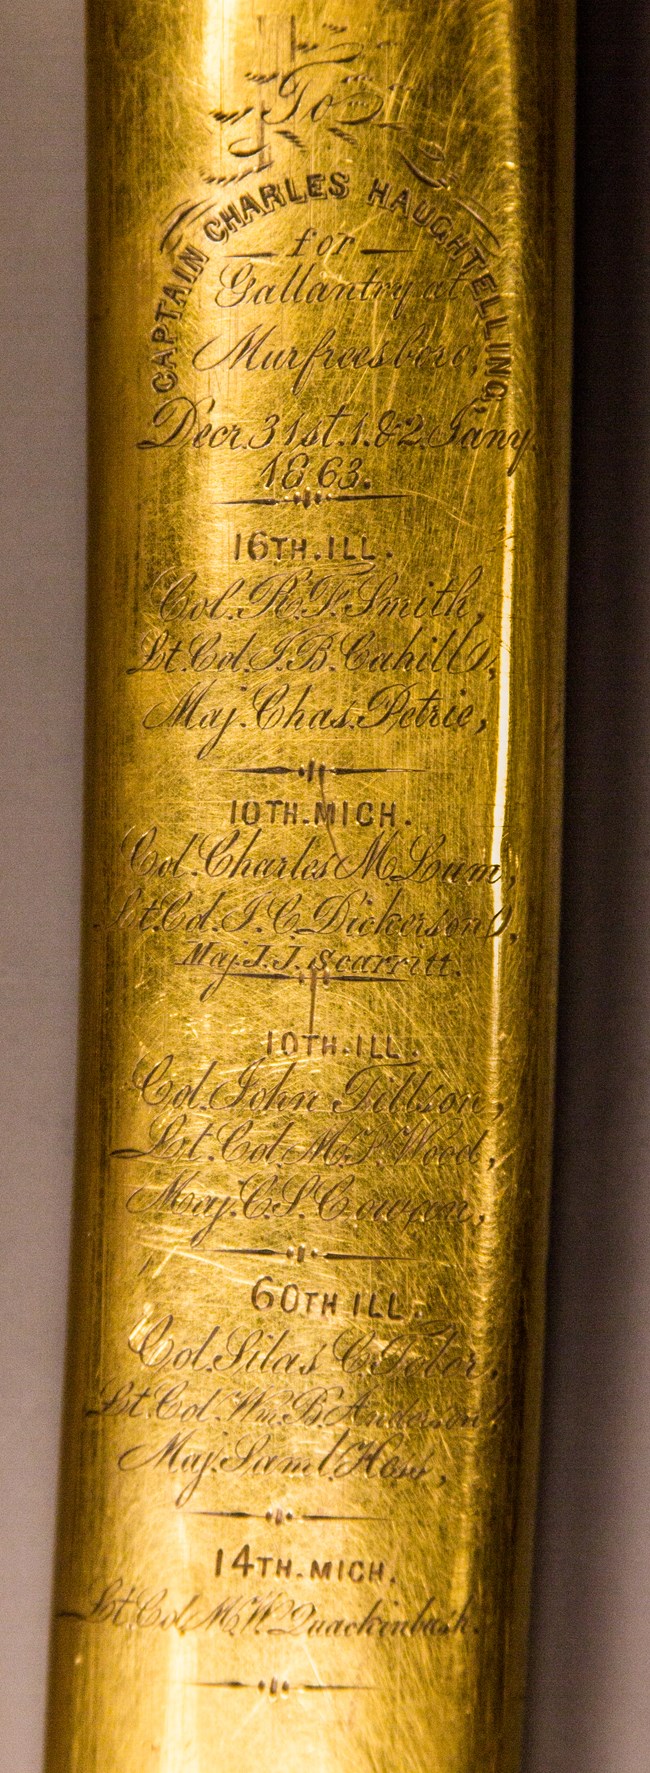 To
CAPTAIN CHARLES HAUGHTELLING,
for
Gallantry at
Murfreesboro,
Decr. 31st. 1. & 2. Jany.
1863.
16TH. ILL.
Col. R. F. Smith,
Lt. Col. J. B. Cahill,
Maj. Chas. Petrie,
10TH. MICH.
Col. Charles M. Lum,
Lt. Col. J. C. Dickerson,
Maj. J. J. Scarritt.
10TH. ILL.
Col. John Tillson,
Lt. Col. M. F. Wood,
Maj. C. S. Cowan,
60TH ILL.
Col. Silas C. Toler,
Lt. Col. Wm. B. Anderson,
Maj. Saml. Hess,
14TH. MICH.
Lt. Col. M. W. Quackinbush.